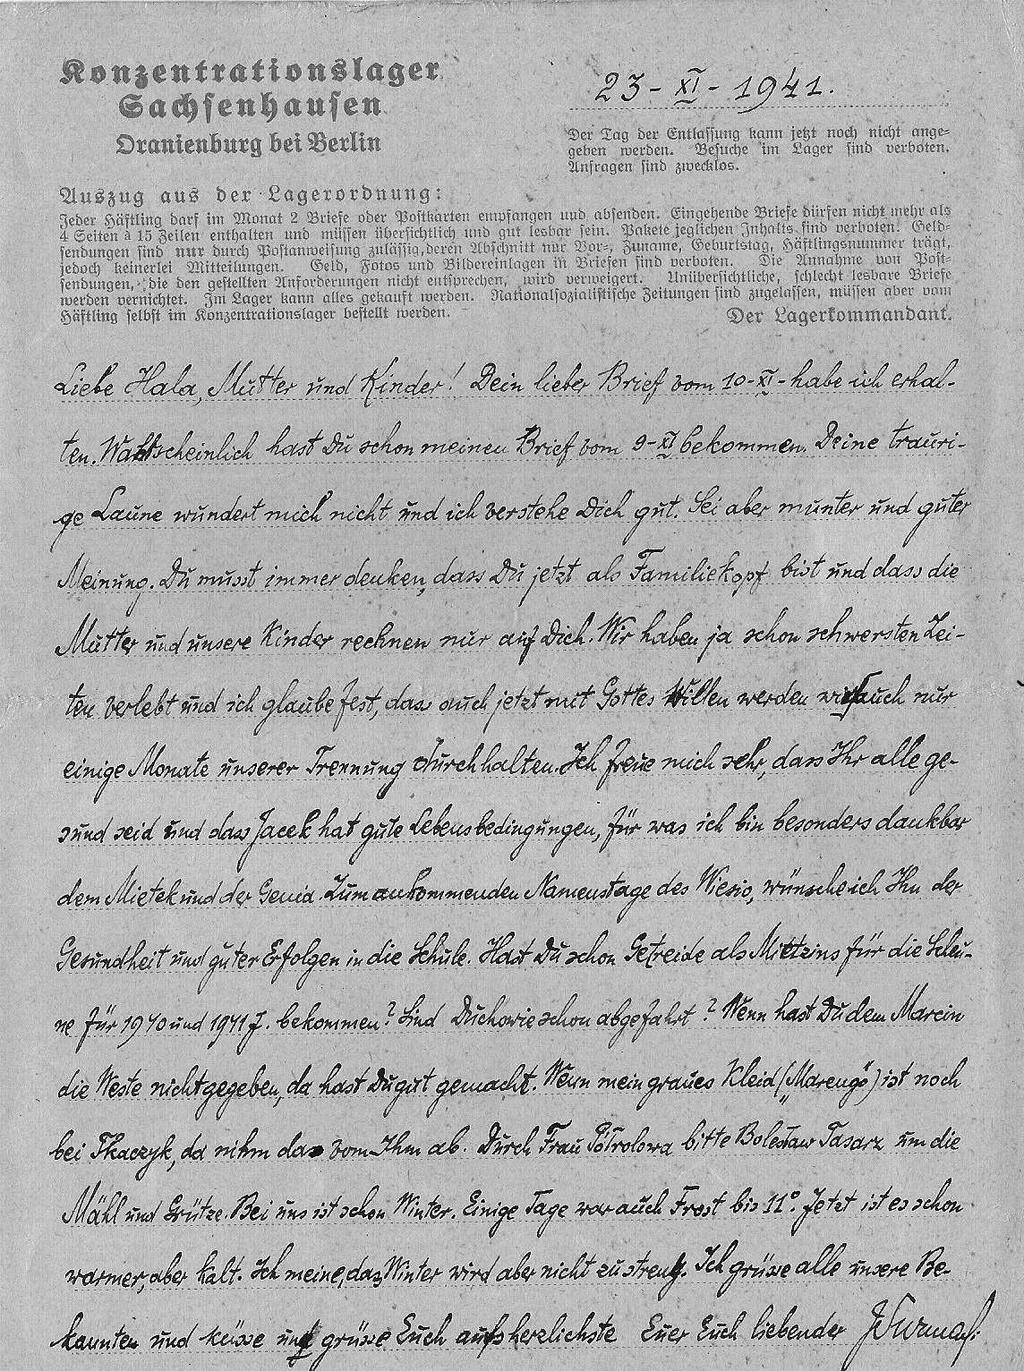 Konzentrationslager
Sachsenhausen
Oranienburg bei Berlin
23-XI-1941.
Der Tag der Entlassung kann jetzt noch nicht ange-
geben werden. Besuche im Lager sind verboten.
Anfragen sind zwecklos.
Auszug aus der Lagerordnung:
Jeder Häftling darf im Monat 2 Briefe oder Postkarten empfangen und absenden. Eingehende Briefe dürfen nicht mehr als
4 Seiten à 15 Zeilen enthalten und müssen übersichtlich und gut lesbar sein. Pakete jeglichen Inhalts sind verboten. Geld-
sendungen sind nur durch Postanweisung zulässig, deren Abschnitt nur Vor-, Zuname, Geburtstag, Häftlingsnummer trägt,
jedoch keinerlei Mitteilungen. Geld, Fotos und Bildereinlagen in Briefen sind verboten. Die Annahme von Post-
sendungen, die den gestellten Anforderungen nicht entsprechen, wird verweigert. Unübersichtliche, schlecht lesbare Briefe
werden vernichtet. Im Lager kann alles gekauft werden. Nationalsozialistische Zeitungen sind zugelassen, müssen aber vom
Häftling selbst im Konzentrationslager bestellt werden.
Der Lagerkommandant.
Liebe Hala, Mutter und Kinder! Dein lieber Brief vom 10-XI-habe ich erhal-
ten. Wahrscheinlich hast Du schon meinen Brief vom 9-XI bekommen. Deine trauri-
ge Laune wundert mich nicht und ich verstehe Dich gut. Sei aber munter und guter
Meinung. Du musst immer denken, dass Du jetzt als Familiekopf bist und dass die
Mutter und unsere Kinder rechnen nur auf Dich. Wir haben ja schon schwersten Zei-
ten verlebt und ich glaube fest, dass auch jetzt mit Gottes Willen werden wir auch nur
einige Monate unserer Trennung durchhalten. Ich freue mich sehr, dass Ihr alle ge-
sund seid und dass Jacek hat gute Lebensbedingungen, für was ich bin besonders dankbar
dem Mietek und der Genia. Zum ankommenden Namenstage des Wiesio, wünsche ich Ihn der
Gesundheit und guter Erfolgen in die Schule. Hast Du schon Getreide als Mietzins für die Scheu-
ne für 1940 und 1941 J. bekommen? Sind Duchowie schon abgefahrt? Wenn hast Du dem Marcin
die Weste nicht gegeben, da hast Du gut gemacht. Wenn mein graues Kleid („Marengo") ist noch
bei Tkaczyk, da nihm das vom Ihm ab. Durch Frau bitte Bolesław Tasarz um die
Mähl und Grütze. Bei uns ist schon Winter. Einige Tage war auch Frost bis 11°. Jetzt ist es schon
warmer, aber kalt. Ich meine, das Winter wird aber nicht zu streng. Ich grüsse alle unsere Be-
kannten und küsse und grüsse Euch aufs herzlichste Euer Euch liebender